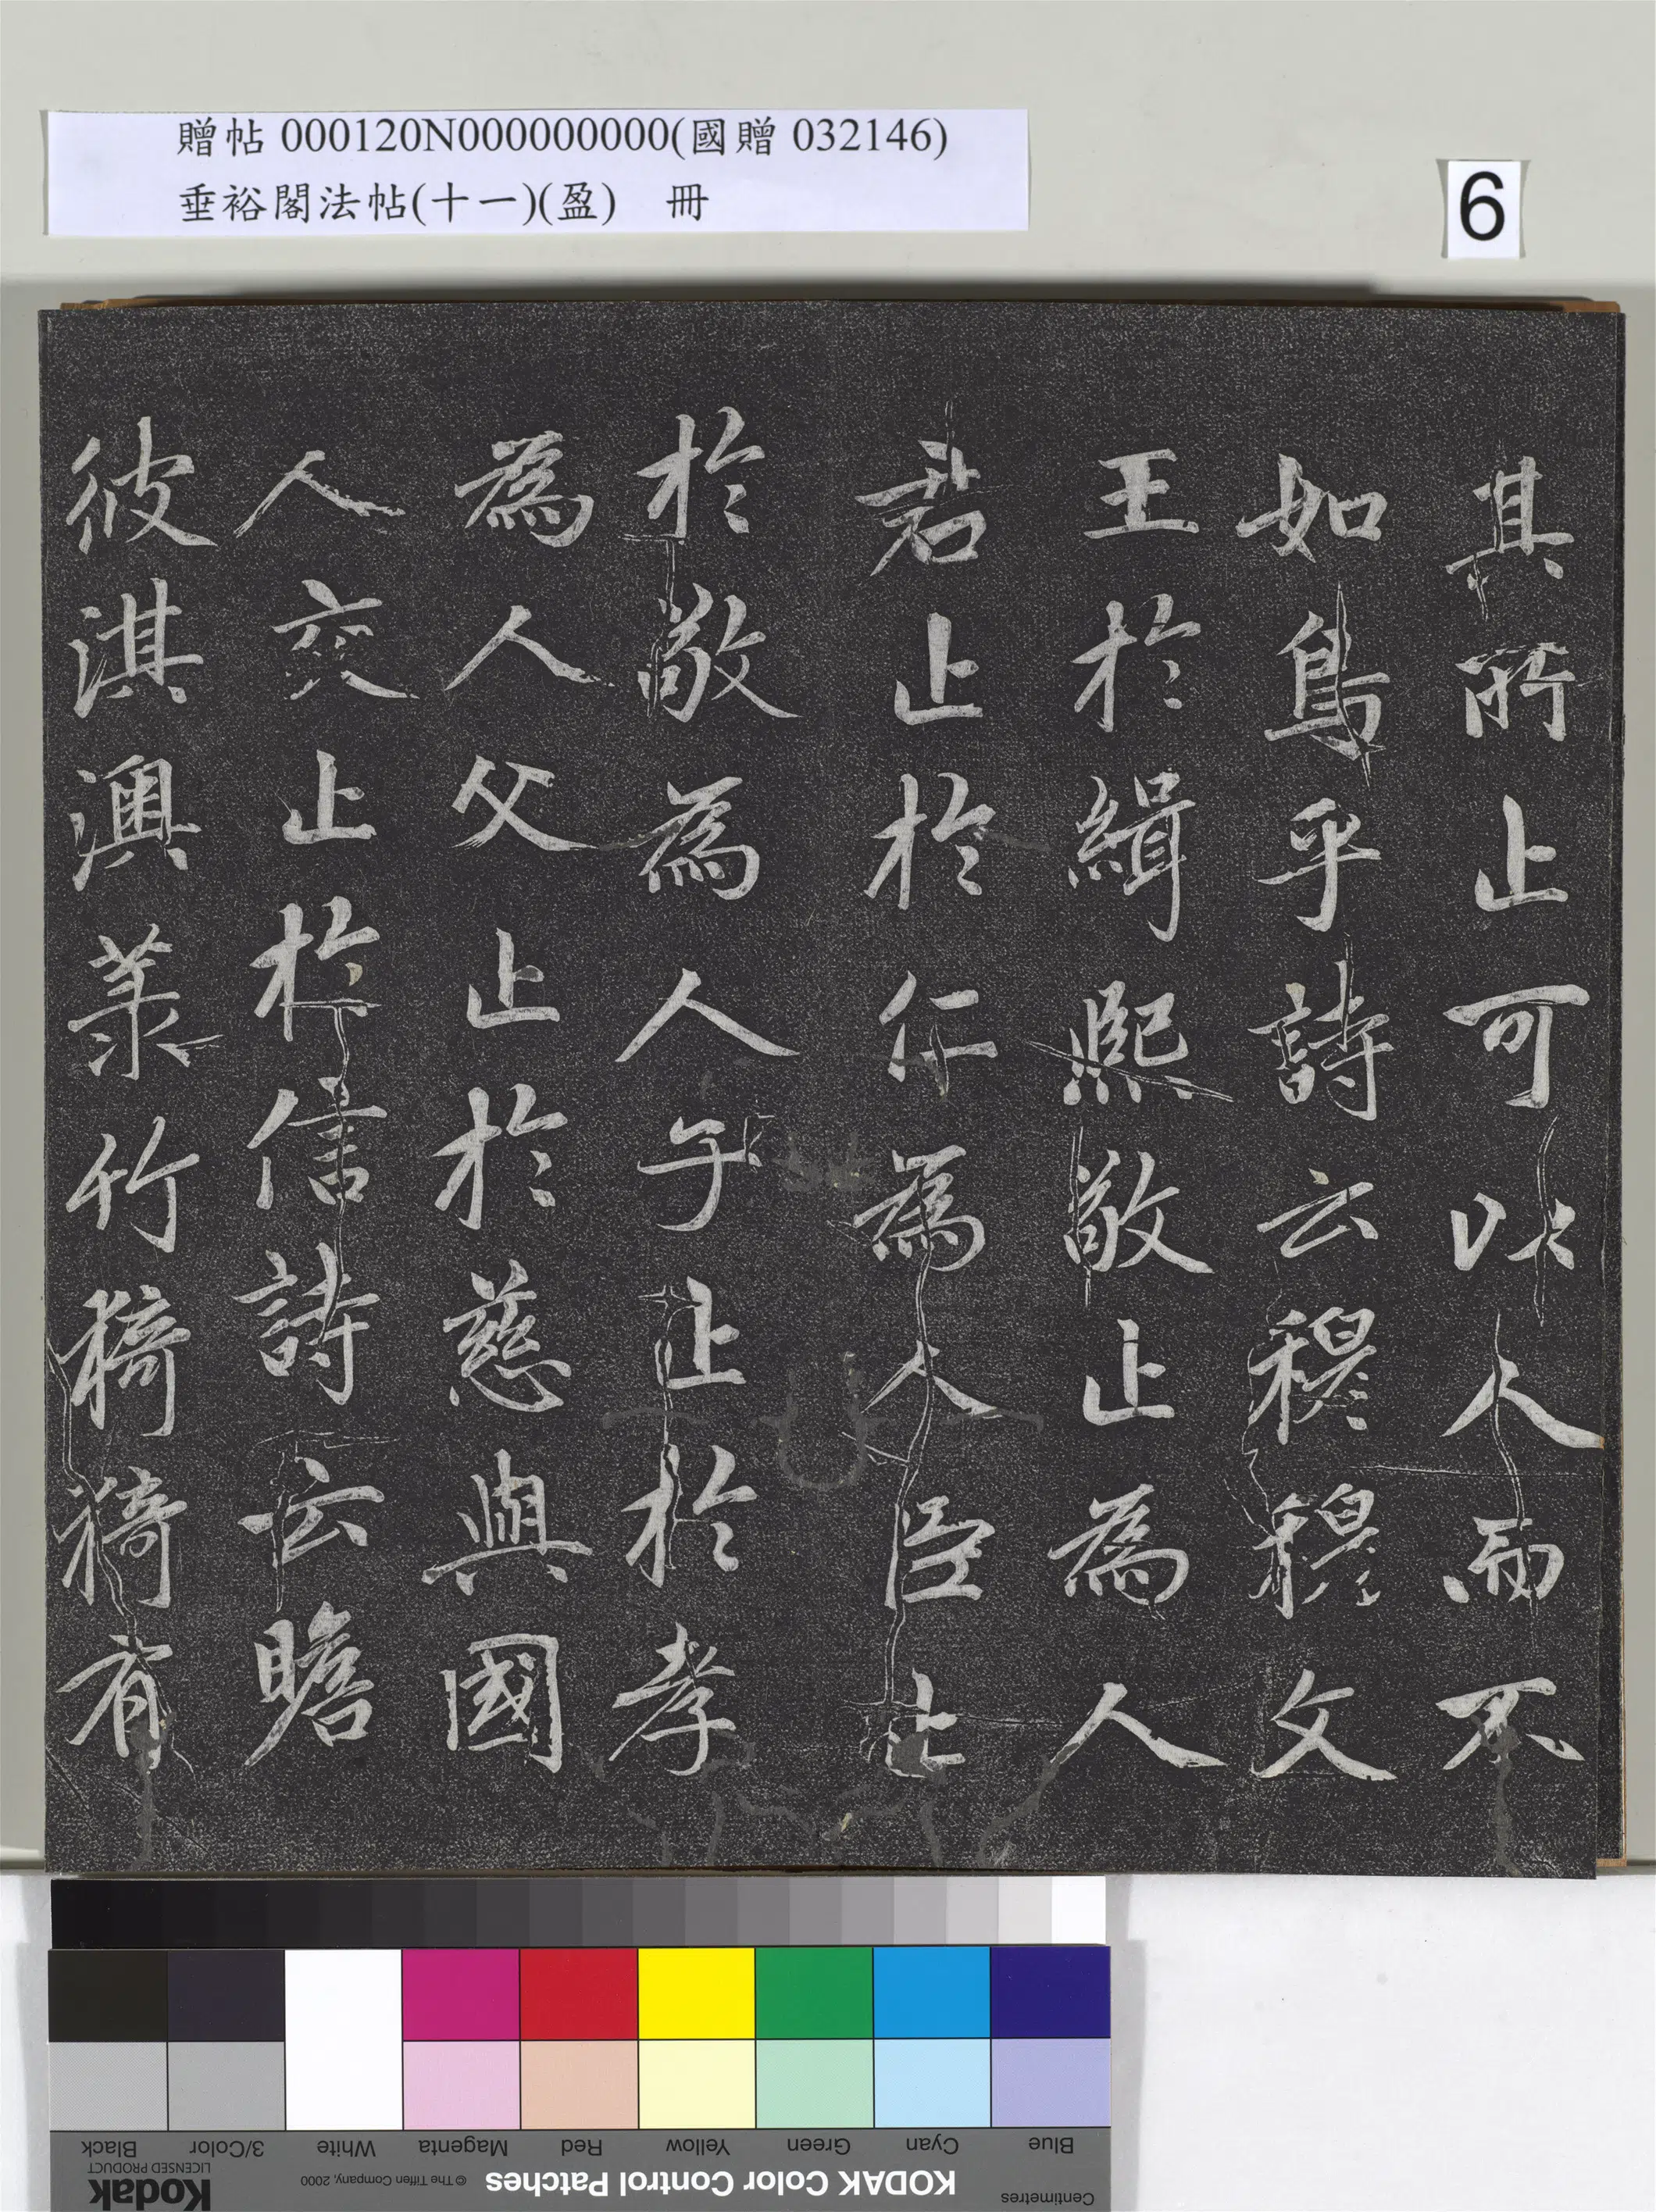 贈帖 000120N000000000(國贈 032146)
垂裕閣法帖(十一)(盈) 冊
6
其所止可以人而不
如鳥乎詩云穆穆文
王於緝熙敬止為人
君止於仁為人臣止
於敬為人子止於孝
為人父止於慈與國
人交止於信詩云瞻
彼淇澳菉竹猗猗有
Blue Cyan Green Yellow Red Magenta White 3/Color Black
Centimetres
KODAK Color Control Patches
© The Tiffen Company, 2000
LICENSED PRODUCT
Kodak